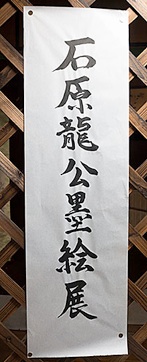 石原龍公墨絵展